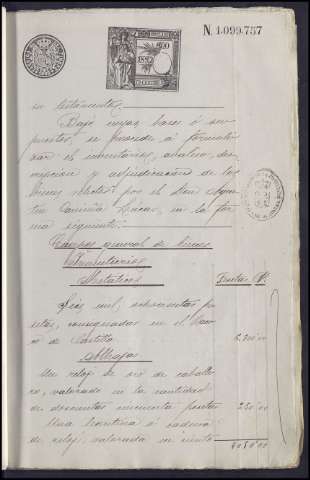 N. 1.099.757
su testamento.
Bajo cuyas bases ó su-
puestos, se procede á formali-
zar el inventario, avalúo, des-
cripcion y adjudicacion de los
bienes por el Sr. Agus-
tin Lucas, en la for-
ma siguiente:
Cuerpo general de bienes
Inventario
Metálico
Pesetas Cs.
Seis mil, ochocientas pe-
setas, consignadas en el Ban-
co de Castilla
6.800'00
Alhajas
Un reloj de oro de caballe-
ro, valorado en la cantidad
de doscientas cincuenta pesetas
250'00
Una leontina ó cadena
de reloj, valorada en ciento
7.050'00